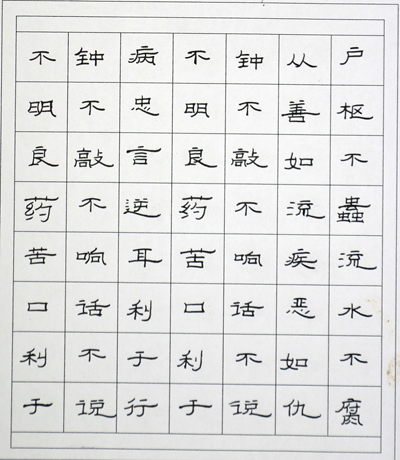 户枢不蠹流水不腐
从善如流疾恶如仇
钟不敲不响话不说
不明良药苦口利于
病忠言逆耳利于行
钟不敲不响话不说
不明良药苦口利于